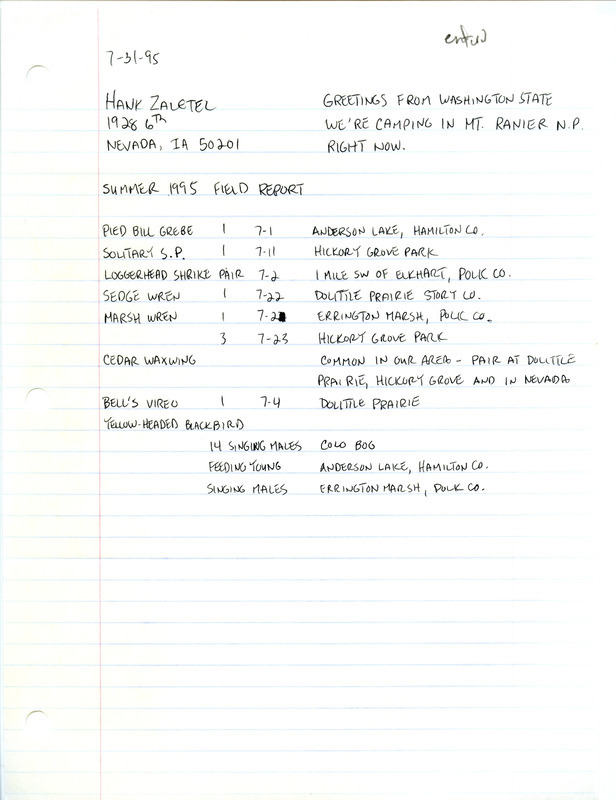 entered
7-31-95
HANK ZALETEL
1928 6TH
NEVADA, IA 50201
GREETINGS FROM WASHINGTON STATE
WE'RE CAMPING IN MT. RANIER N.P.
RIGHT NOW.
SUMMER 1995 FIELD REPORT
PIED BILL GREBE 1 7-1 ANDERSON LAKE, HAMILTON CO.
SOLITARY S.P. 1 7-11 HICKORY GROVE PARK
LOGGERHEAD SHRIKE PAIR 7-2 1 MILE SW OF ELKHART, POLK CO.
SEDGE WREN 1 7-22 DOLITTLE PRAIRIE STORY CO.
MARSH WREN 1 7-2 ERRINGTON MARSH, POLK CO.
3 7-23 HICKORY GROVE PARK
CEDAR WAXWING COMMON IN OUR AREA - PAIR AT DOLITTLE
PRAIRIE, HICKORY GROVE AND IN NEVADA
BELL'S VIREO 1 7-4 DOLITTLE PRAIRIE
YELLOW-HEADED BLACKBIRD
14 SINGING MALES COLO BOG
FEEDING YOUNG ANDERSON LAKE, HAMILTON CO.
SINGING MALES ERRINGTON MARSH, POLK CO.